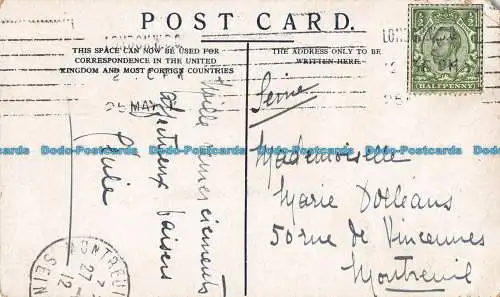 POST CARD.
THIS SPACE CAN NOW BE USED FOR
CORRESPONDENCE IN THE UNITED
KINGDOM AND MOST FOREIGN COUNTRIES
THE ADDRESS ONLY TO BE
WRITTEN HERE.
LONDON. W.C.
MAY
HALFPENNY
Mille remerciements
affectueux baisers
Seine
Mademoiselle
Marie Dolléans
50 rue de Vincennes
Montreuil
MONTREUIL
27
12
SEIN
Dodo-Postcards Dodo-Postcards Dodo-Postcards Dodo-Postcards Dodo-Postcards